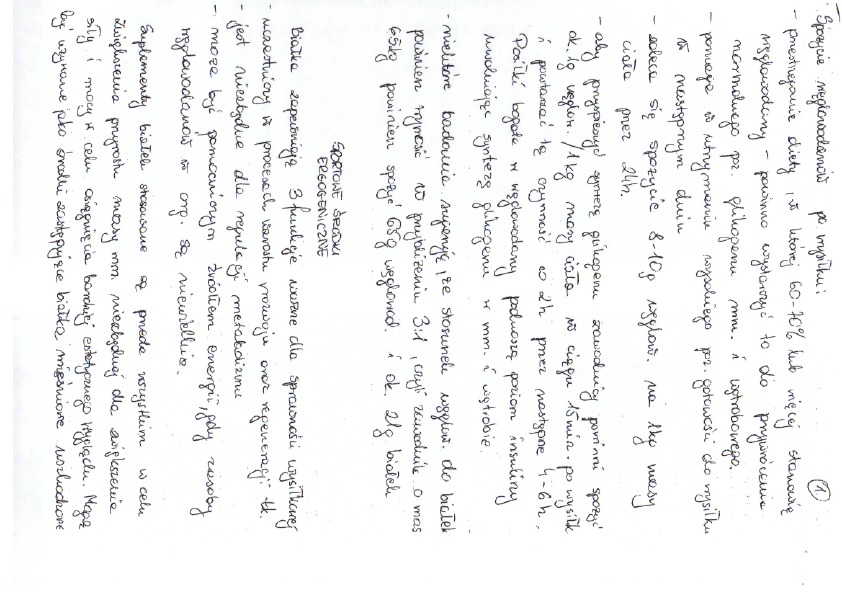 ①
Spożycie węglowodanów po wysiłku:
- przestrzeganie diety, w której 60-70% lub więcej stanowią
węglowodany - powinno wystarczyć to do przywrócenia
normalnego poz. glikogenu mm. i wątrobowego
- pomaga w utrzymaniu wysokiego poz. gotowości do wysiłku
w następnym dniu
- zaleca się spożycie 8-10g węglow. na 1kg masy
ciała przez 24h.
- aby przyspieszyć syntezę glikogenu zawodnicy powinni spożyć
ok. 1g węglow. / 1kg masy ciała w ciągu 15min. po wysiłk
i powtarzać tę czynność co 2h przez następne 4-6h.
Posiłki bogate w węglowodany podnoszą poziom insuliny
uwalniając syntezę glikogenu w mm. i wątrobie.
- niektóre badania sugerują, że stosunek węglow. do białek
powinien wynosić w przybliżeniu 3:1, czyli zawodnik o mas
65kg powinien spożyć 65g węglowod. i ok. 21g białek
SPORTOWE ŚRODKI
ERGOGENICZNE
Białka zapewniają 3 funkcje ważne dla sprawności wysiłkowej
- uczestniczy w procesach wzrostu rozwoju oraz regeneracji tk.
- jest niezbędne dla regulacji metabolizmu
- może być pomocniczym źródłem energii, gdy zasoby
węglowodanów w org. są niewielkie.
Suplementy białek stosowane są przede wszystkim w celu
zwiększenia przyrostu masy mm. niezbędnej dla zwiększenia
siły i mocy w celu osiągnięcia bardziej estetycznego wyglądu. Mogą
być używane jako środki zastępujące białka mięśniowe uszkodzone